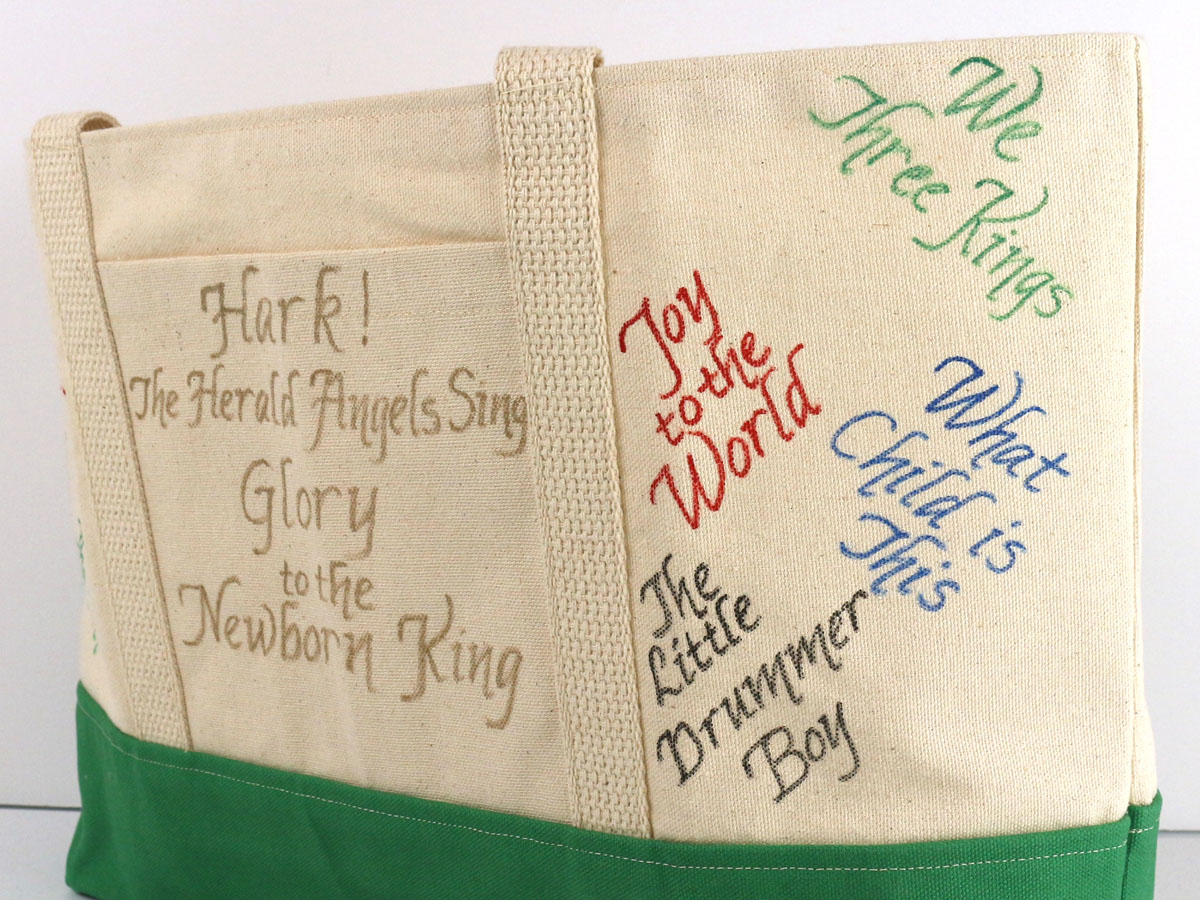 Hark!
The Herald Angels Sing
Glory
to the
Newborn King
We
Three Kings
Joy
to the
World
What
Child is
This
The
Little
Drummer
Boy